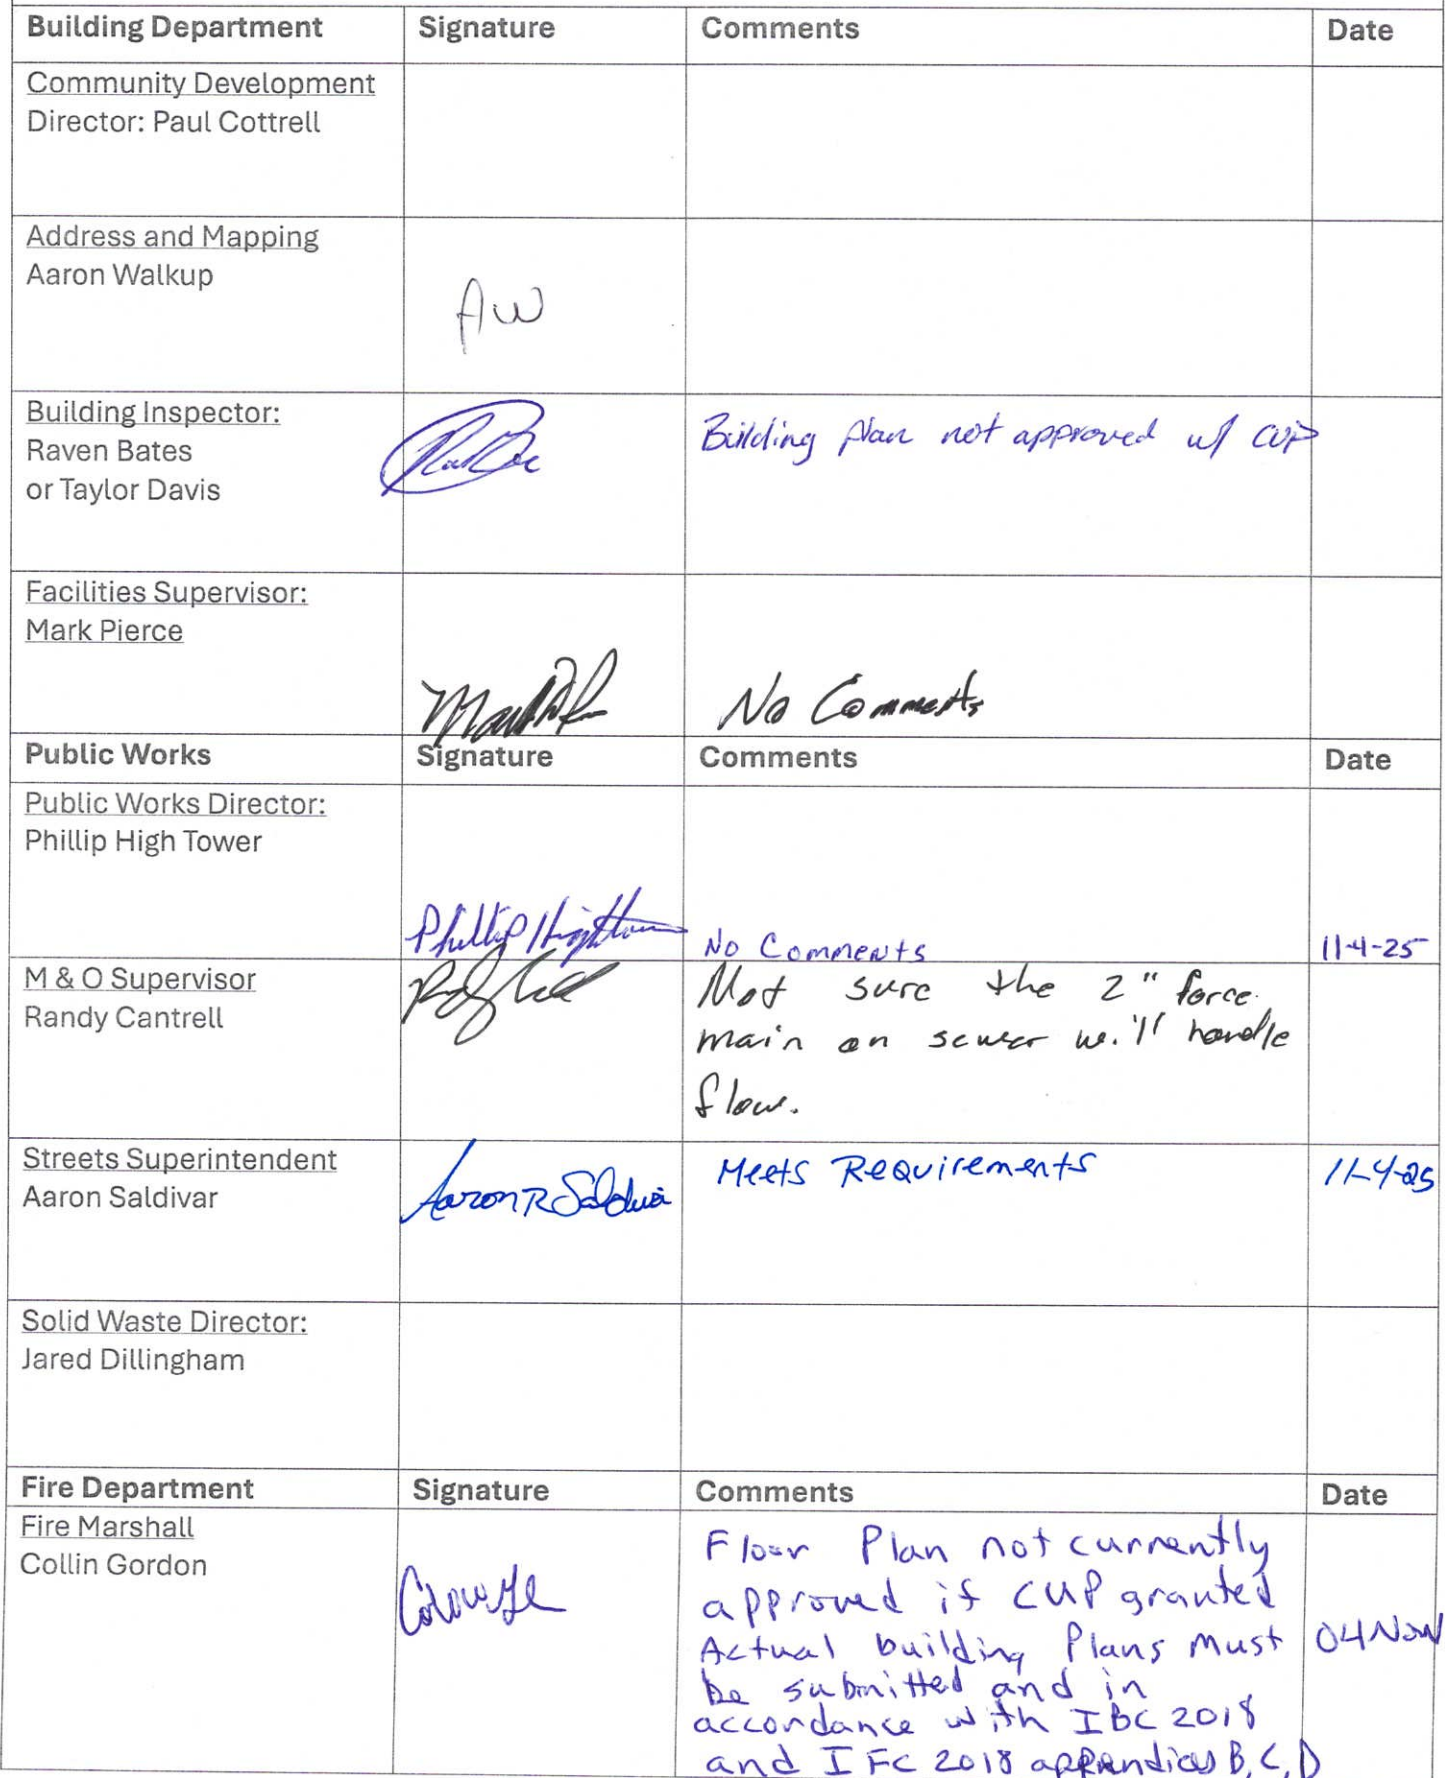 Building Department Signature Comments Date
Community Development
Director: Paul Cottrell
Address and Mapping
Aaron Walkup
AW
Building Inspector:
Raven Bates
or Taylor Davis
Building plan not approved w/ CUP
Facilities Supervisor:
Mark Pierce
No Comments
Public Works Signature Comments Date
Public Works Director:
Phillip High Tower
Phillip Hightower No Comments 11-4-25
M & O Supervisor
Randy Cantrell
Not sure the 2" force
main on sewer will handle
flow.
Streets Superintendent
Aaron Saldivar
Aaron R Saldivar Meets Requirements 11-4-25
Solid Waste Director:
Jared Dillingham
Fire Department Signature Comments Date
Fire Marshall
Collin Gordon
Floor Plan not currently
approved if CUP granted
Actual building Plans Must 04Nov
be submitted and in
accordance with IBC 2018
and IFC 2018 appendices B,C,D